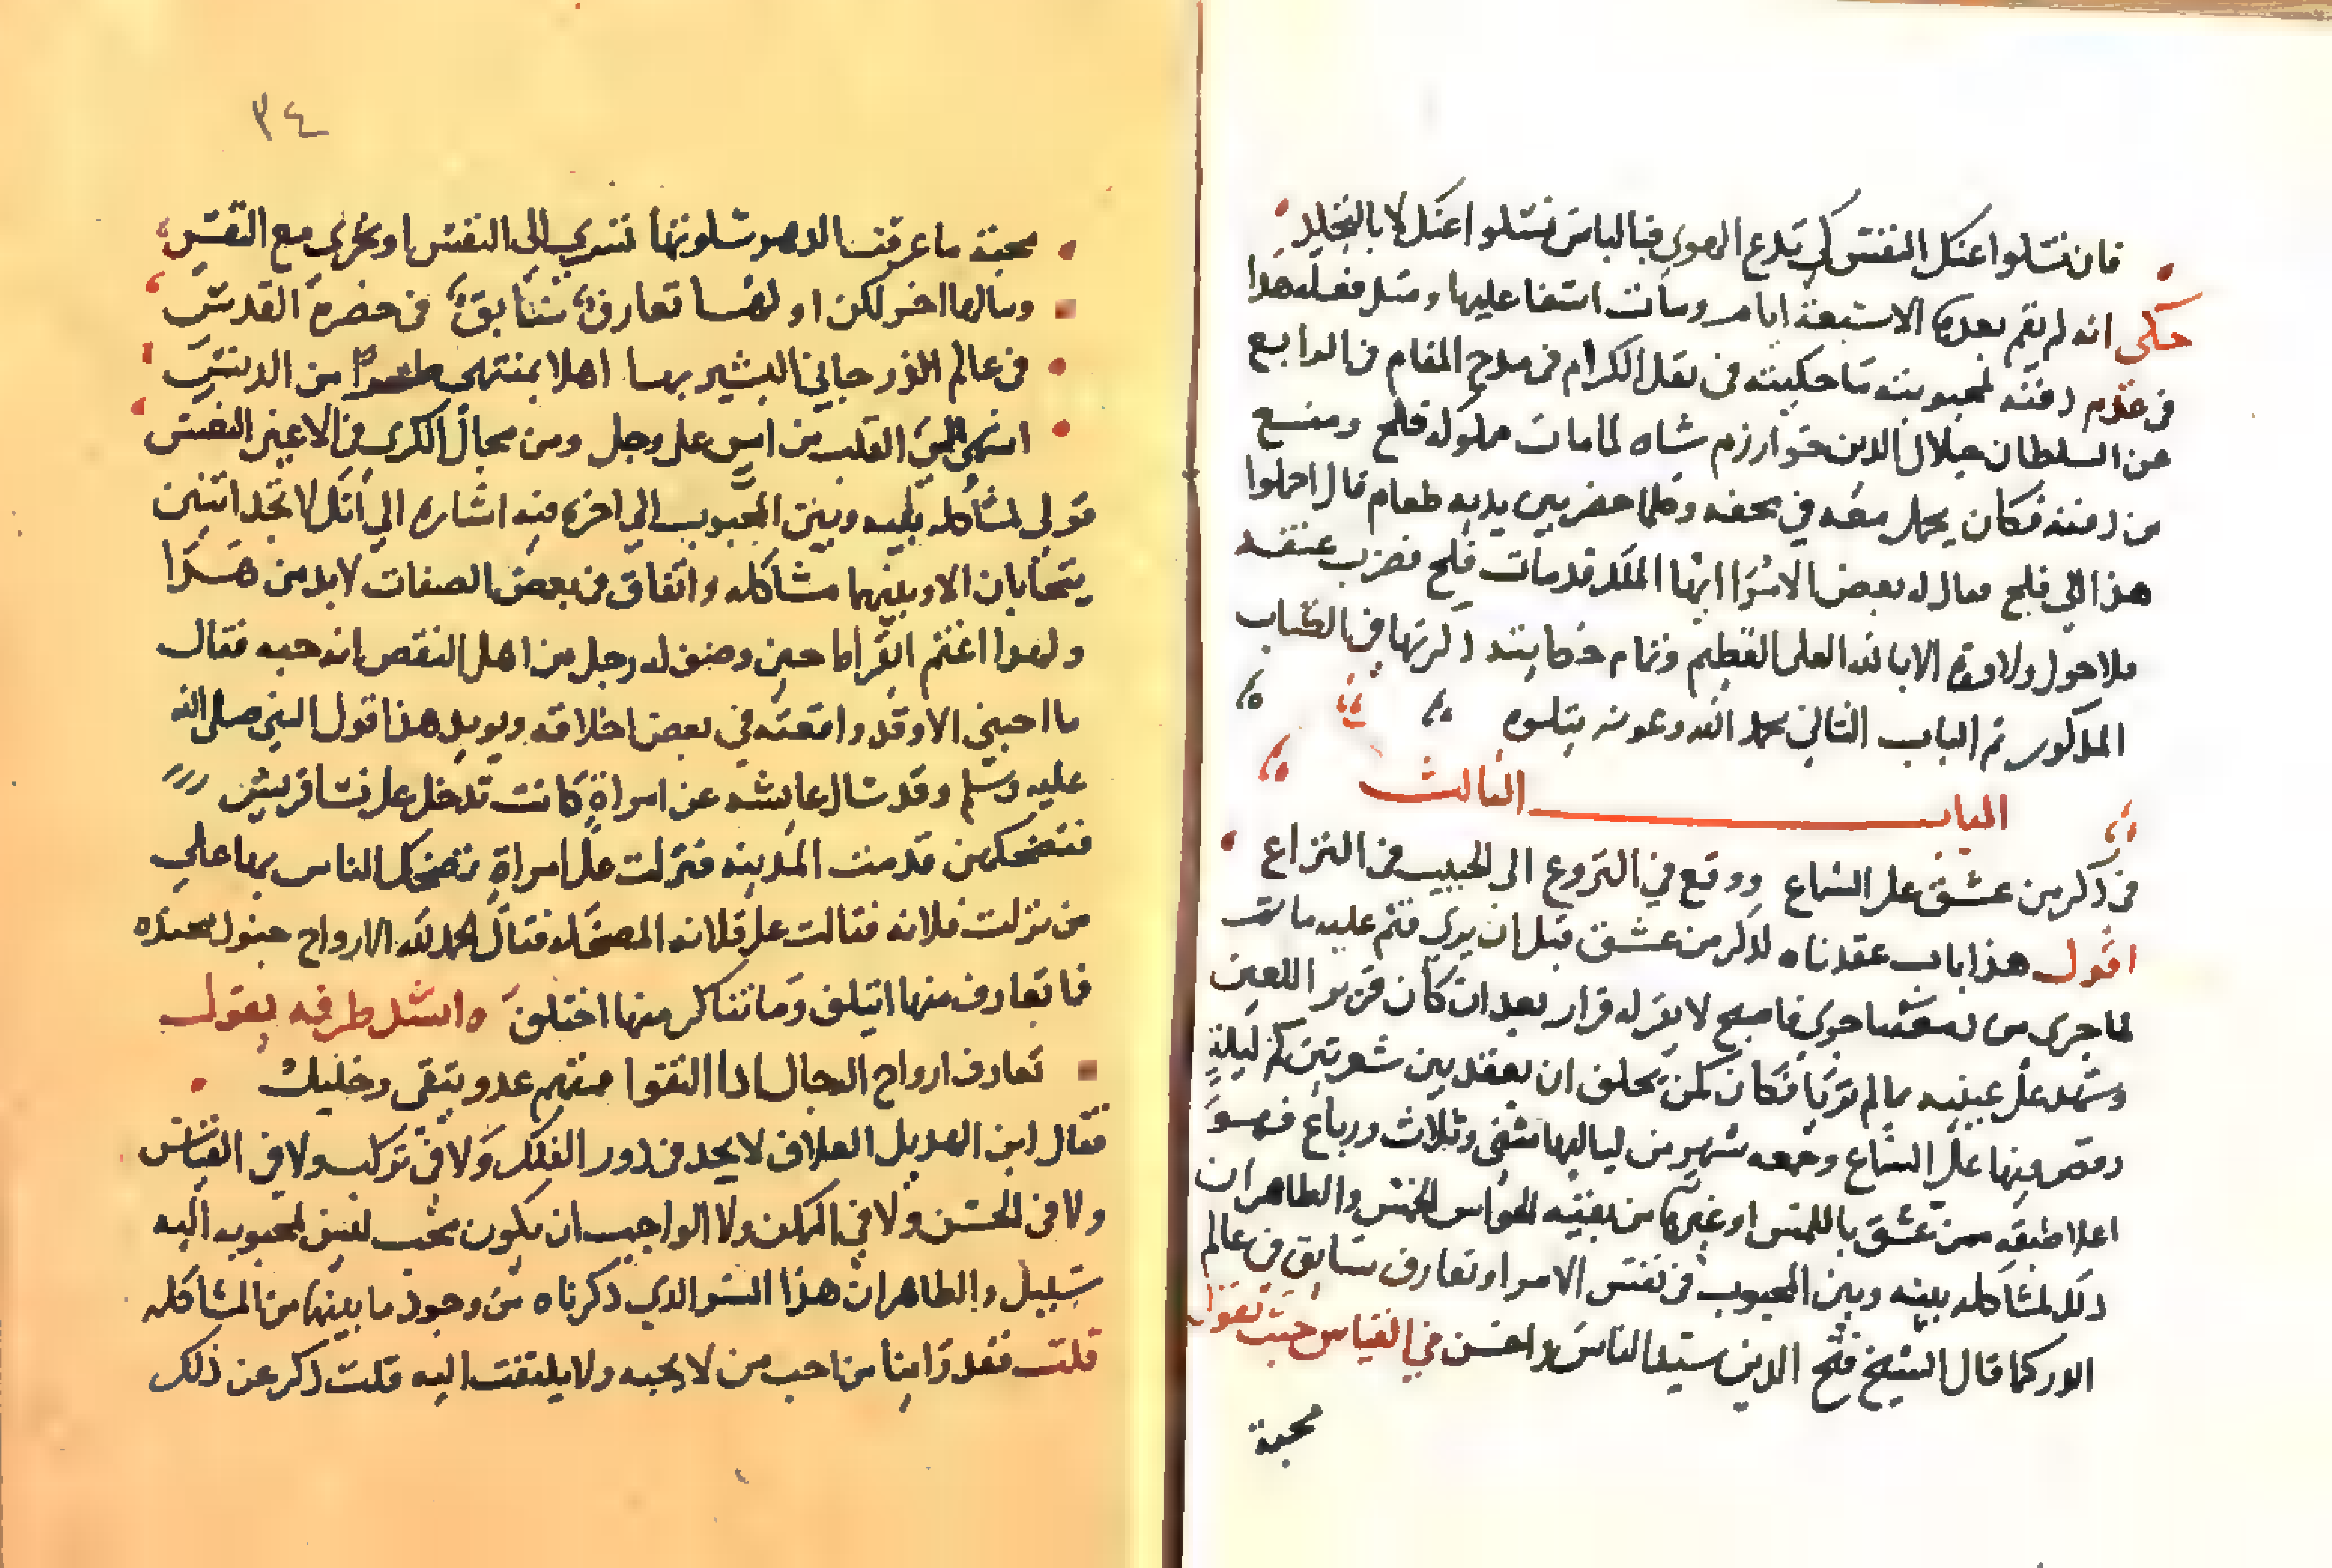 فان تسلوا عنك النفس كي تدع الهوى فبالباس تسلوا عنك لا بالتجلد
حكى انه لم يقم بعدها الا سبعة ايام ومات اسفا عليها ومثل فعله هذا
في عدم دفنه لمحبوبته ما حكيته في نقل الكرام في مدح المقام في الرابع
عن السلطان جلال الدين خوارزم شاه لما مات مملوكه قلج ومنع
من دفنه فكان يحمل معه في محفه وكلما حضر بين يديه طعام قال احملوا
هذا الي قلج فقال له بعض الامرا ايها الملك قد مات قلج فضرب عنقه
فلا حول ولا قوة الا بالله العلى العظيم وتمام حكايته ذكرتها في الكتاب
المذكور تم الباب الثاني بحمد الله وعونه يتلوه
الباب الثالث
في ذكر من عشق على السماع ووقع في النزوع الى الحبيب في النزاع
اقول هذا باب عقدناه لذكر من عشق قبل ان يرى فتم عليه ما تم
لما جرى من دمعه ما جرى فاصبح لا يقر له قرار بعد ان كان قرير العين
وشهد على عينيه بما لم تريا فكان كمن يحلف ان يعقد بين شعرتين كم ليلة
رقص فيها على السماع وجمعه شهر من لياليها مثنى وثلاث ورباع فهو
اعلا طبقه ممن عشق باللمس او غيرها من بقية الحواس الخمس والظاهر ان
ذلك لمشاكله بينه وبين المحبوب في نفس الامر او تعارف سابق في عالم
الذر كما قال الشيخ فتح الدين سيد الناس واحسن في القياس حيث يقول
محبة
٣٤
محبة ما عرفنا الدهر سلوتها تسري الى النفس او تجري مع النفس
وما لها اخر لكن اولها تعارف سابق في حضرة القدس
في عالم الذر جاني البشير بها اهلا بمنتهى من الدنس
اشهى الى القلب من امن على وجل ومن مجال الكرى في الاعين النعس
قولي لمشاكله بينه وبين المحبوب الي اخره فيه اشاره الي انك لا تجد اثنين
يتحابان الا وبينهما مشاكله واتفاق في بعض الصفات لا بد من هذا
ولهذا اغتم ابقراط حين وصف له رجل من اهل النقص انه حبه فقال
ما احبني الا وقد وافقته في بعض اخلاقه ويويد هذا قول النبي صلى الله
عليه وسلم وقد سال عايشه عن امراة كانت تدخل على نسا قريش
فتضحكهن قدمت المدينه فنزلت على امراة تضحك الناس بها على
من نزلت فلانه فقالت على فلانه المضحكه فقال الحمد لله الارواح جنود مجنده
فما تعارف منها ايتلف وما تناكر منها اختلف ه انشد طرفه يقول
تعارف ارواح الرجال اذا التقوا فمنهم عدو يتقى وخليل
فقال ابن الهذيل العلاف لا يجد في دور الفلك ولا في تركب ولا في القياس
ولا في الحسن ولا في الممكن ولا الواجب ان يكون محب ليس لمحبوبه اليه
سبيل والظاهر ان هذا السر الذي ذكرناه من وجود ما بينهما من المشاكله
قلت فقد راينا من احب من لا يحبه ولا يلتفت اليه قلت ذكر عن ذلك